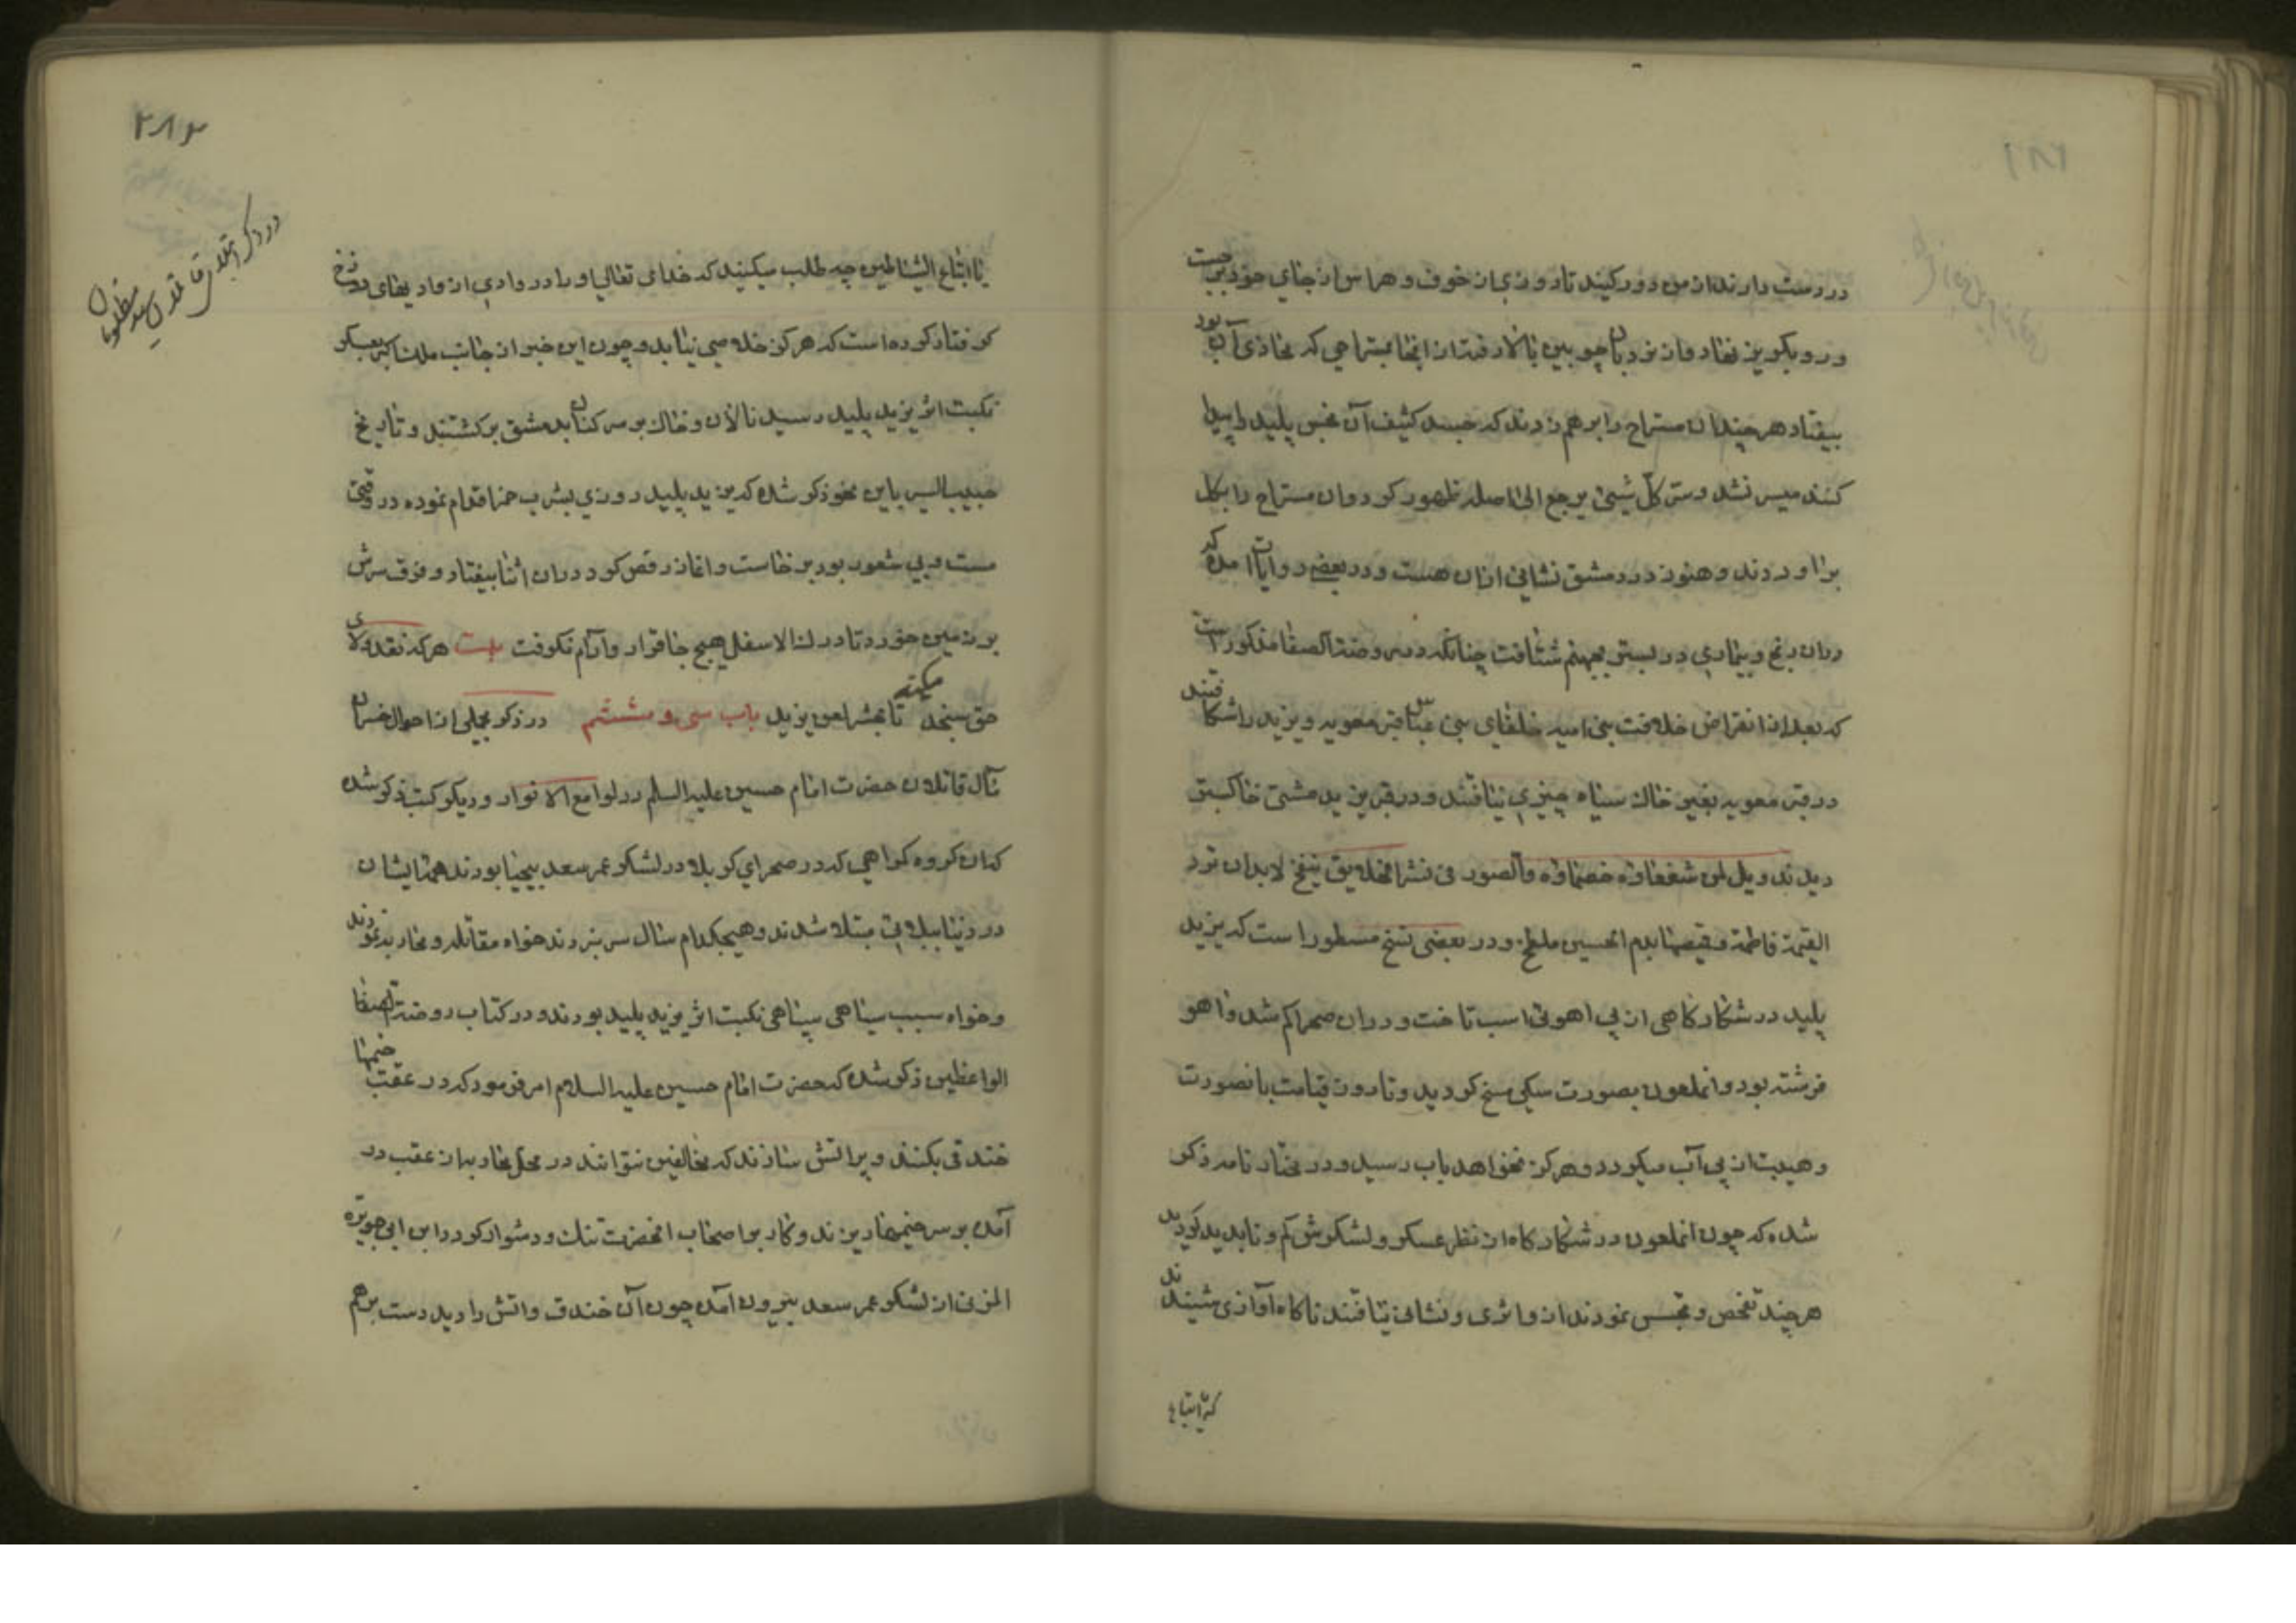 در دست دارند از من دور کنید تا روزی از خوف و هراس از جای خود بر جست
و رو بگریز نهاد و از نردبان چوبین بالا رفت از انجا بمستراحی که محاذی آن بود
بیفتاد هر چند ان مستراح را بر هم زدند که جسد کثیف آن نجس پلید را پیدا
کنند میسر نشد و سر کل شیئ یرجع الی اصله ظهور کرد و ان مستراح را بکل
برآوردند و هنوز در دمشق نشانی ازان هست و در بعضی روایات امده که
دران رنج و بیماری در بستر بجهنم شتافت چنانکه در روضة الصفا مذکور است
که بعد از انقراض خلافت بنی امیه خلفای بنی عباس قبر معویه و یزید را شکافتند
در قبر معویه بغیر خاک سیاه چیزی نیافتند و در قبر یزید مشتی خاکستر
دیدند ویل لمن شفعاؤه خصماؤه والصور فی نشر الخلایق ینفخ لابد ان ترد
القیمة فاطمة و قمیصها بدم الحسین ملطخ و در بعضی نسخ مسطور است که یزید
پلید در شکار کاهی از پی اهوئی اسب تاخت و دران صحرا کم شد و اهو
فرشته بود و انملعون بصورت سکی مسخ کردید و تا روز قیامت بانصورت
و هیبت از پی آب میکردد و هرکز نخواهد باب رسید و در مختار نامه ذکر
شده که چون انملعون در شکار کاه از نظر عسکر و لشکرش کم و ناپدید کردید
هر چند تفحص و تجسس نمودند از و اثری و نشانی نیافتند ناکاه آوازی شنیدند
که یا اتباع
۲۸۲
در ذکر ابتلای قاتلان سید مظلومان
یا اتباع الشیاطین چه طلب میکنید که خدای تعالی او را در وادی از وادیهای دوزخ
کرفتار کرده است که هرکز خلاصی نیابد و چون این خبر از جانب ملک اکبر بعسکر
نکبت اثر یزید پلید رسید نالان و خاک بر سر کنان بدمشق برکشتند و تاریخ
حبیب السیر باین نحو ذکر شده که یزید پلید روزی بشرب خمر اقدام نموده در وقتی
مست و بی شعور بود برخاست و اغاز رقص کرد دران اثنا بیفتاد و فرق سرش
بر زمین خورد تا درک الاسفل هیچ جا قرار و آرام نکرفت بیت هر که نقد ولای
حق سنجد میکند تا بحشر لعن یزید باب سی و ششم در ذکر مجملی از احوال خسران
مآل قاتلان حضرت امام حسین علیه السلم در لوامع الانوار و دیکر کتب ذکر شده
که ان کروه کراهی که در صحرای کربلا در لشکر عمر سعد بیحیا بودند همه ایشان
در دنیا ببلائی مبتلا شدند و هیچکدام سال سر نبردند خواه مقاتله و محاربه نمودند
و خواه سبب سیاهی سپاهی نکبت اثر یزید پلید بودند و در کتاب روضة الصفا
الواعظین ذکر شده که حضرت امام حسین علیه السلام امر فرمود که در عقب خیمها
خندقی بکنند و پر اتش سازند که مخالفین نتوانند در محل محاربه از عقب در
آمده بر سر خیمها ریزند و کار بر اصحاب انحضرت تنک و دشوار کردد ابن ابی جویره
المزنی از لشکر عمر سعد بیرون آمده چون آن خندق و اتش را دید دست بر هم